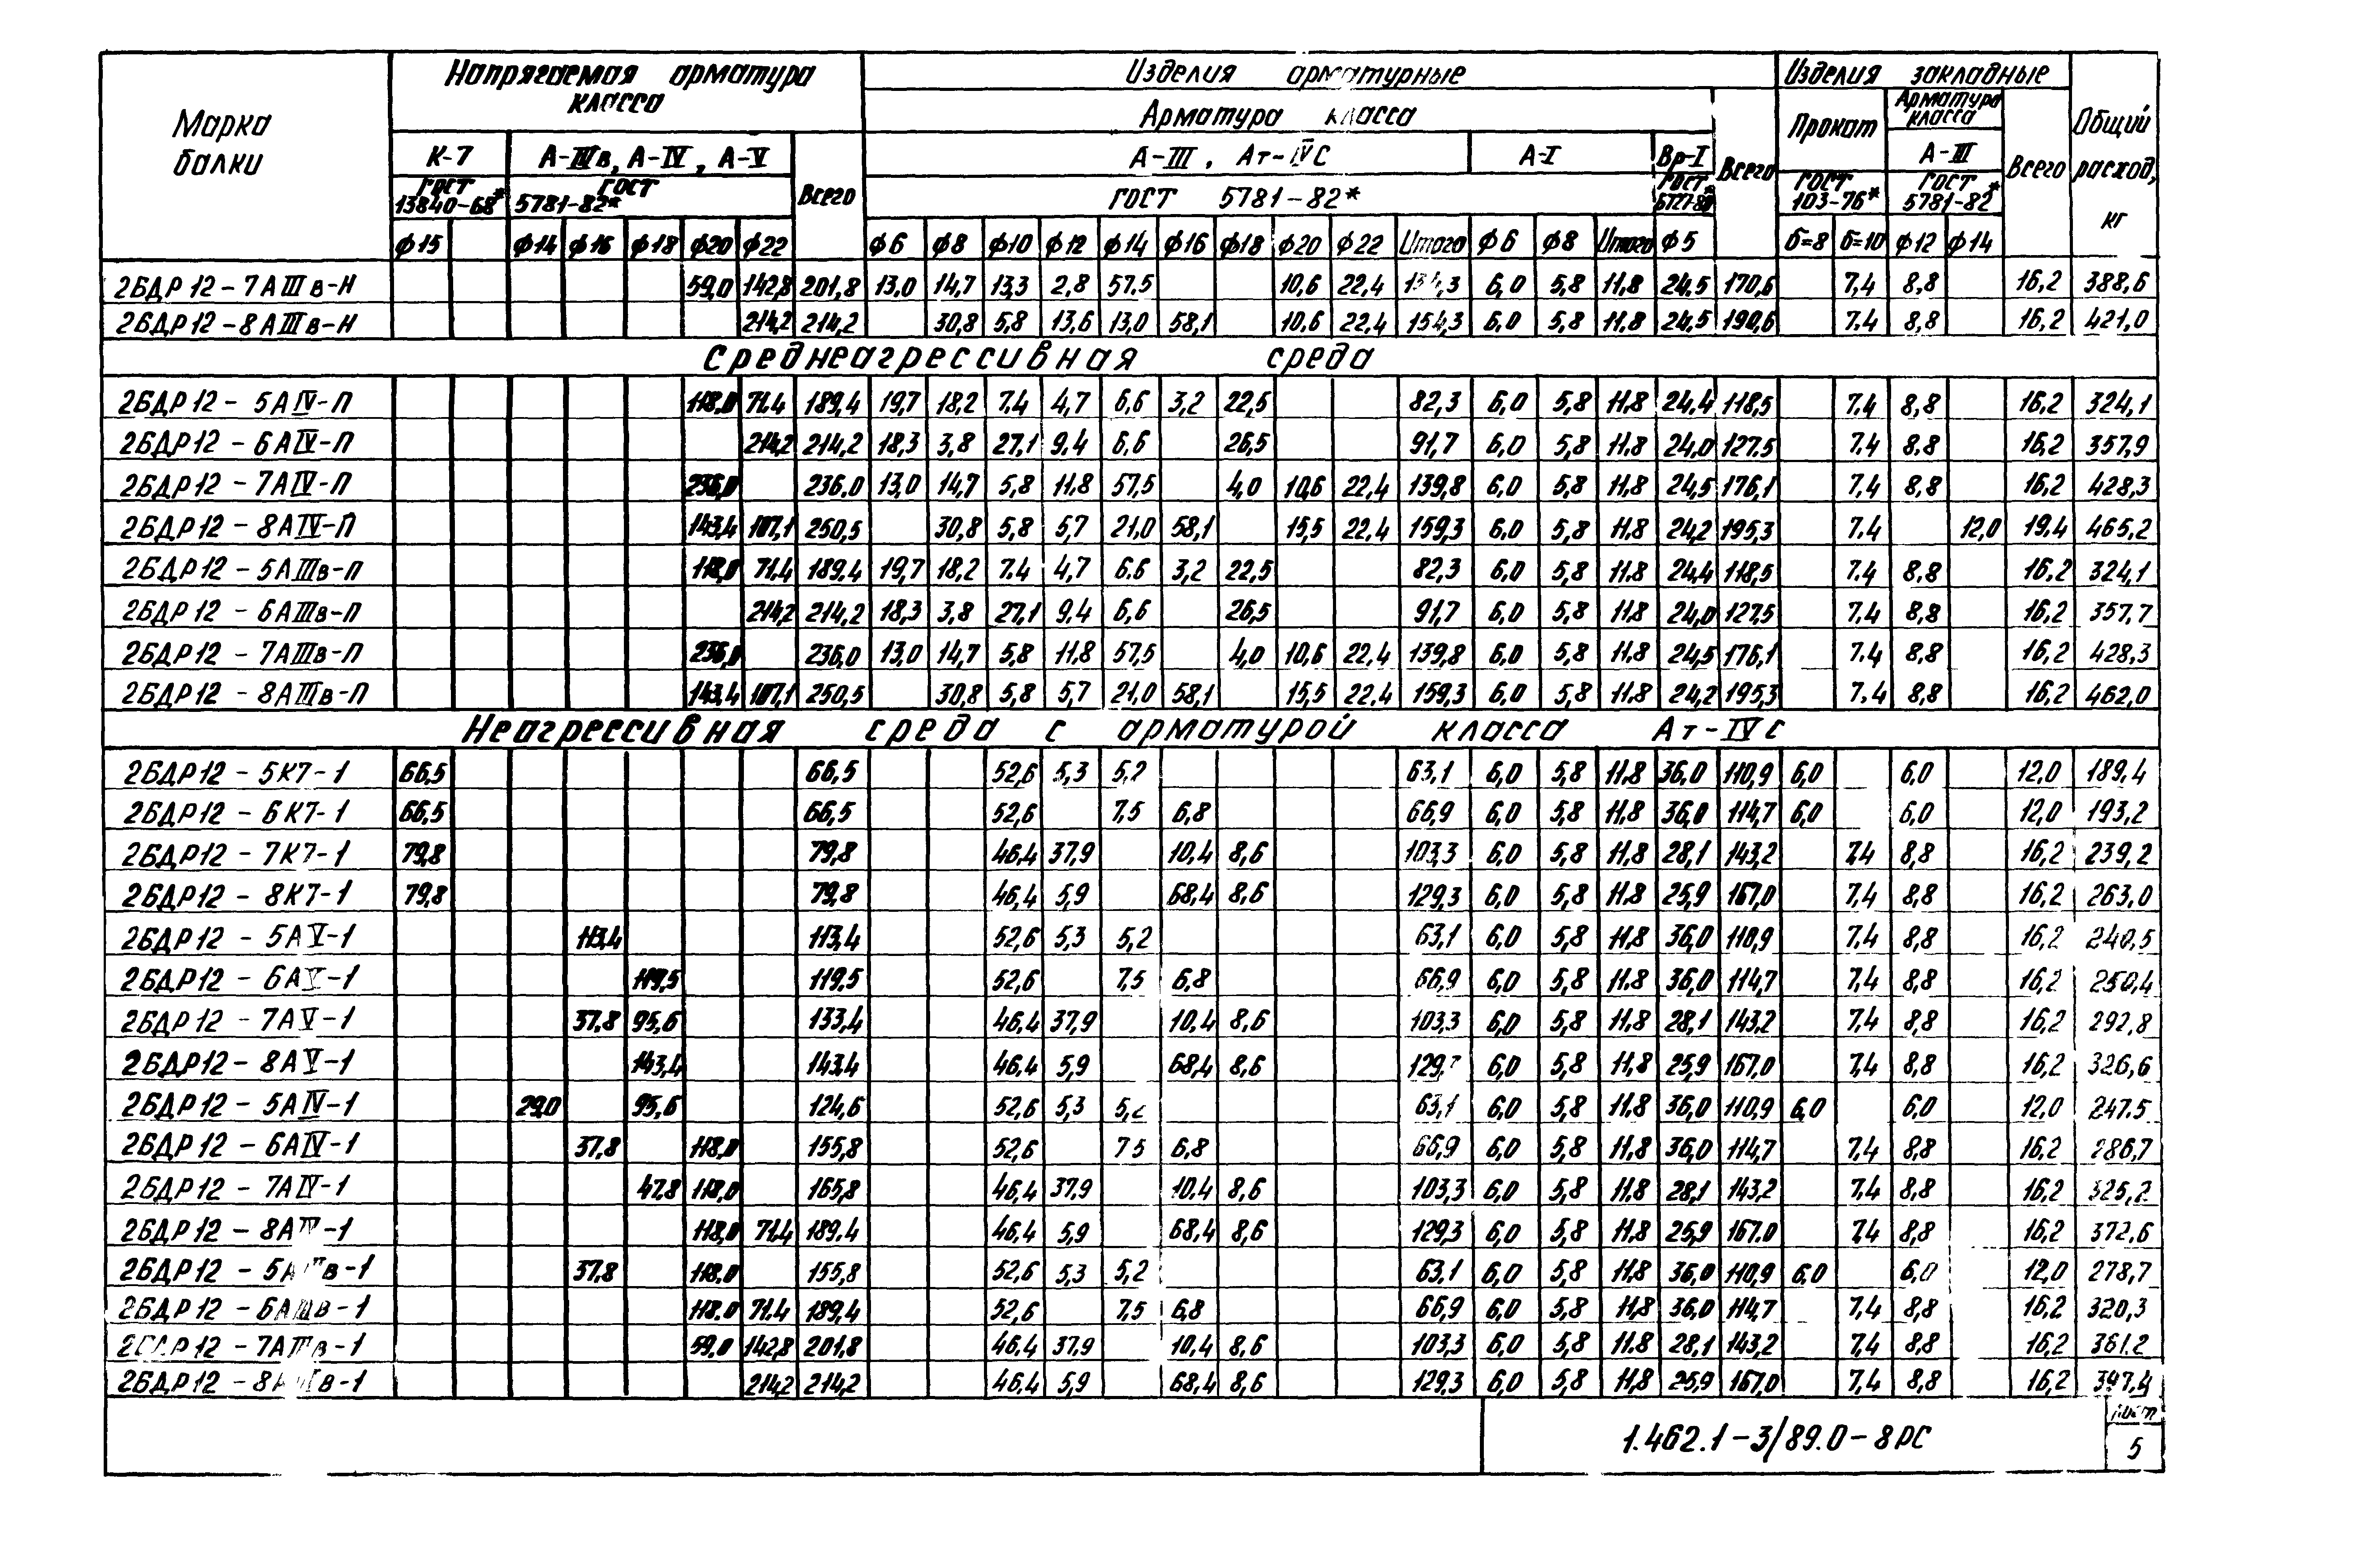 Марка балки | Напрягаемая арматура класса | Изделия арматурные | Изделия закладные | Общий расход, кг
Арматура класса | Всего | Прокат | Арматура класса | Всего
К-7 | А-IIIв, А-IV, А-V | Всего | А-III, Ат-IVС | А-I | Вр-I | А-III
ГОСТ 13840-68* | ГОСТ 5781-82* | ГОСТ 5781-82* | ГОСТ | ГОСТ 103-76* | ГОСТ 5781-82*
ϕ15 | ϕ14 | ϕ16 | ϕ18 | ϕ20 | ϕ22 | ϕ6 | ϕ8 | ϕ10 | ϕ12 | ϕ14 | ϕ16 | ϕ18 | ϕ20 | ϕ22 | Итого | ϕ6 | ϕ8 | Итого | ϕ5 | б=8 | б=10 | ϕ12 | ϕ14
2БДР12-7АIIIв-Н 59,0 142,8 201,8 13,0 14,7 13,3 2,8 57,5 10,6 22,4 6,0 5,8 11,8 24,5 170,6 7,4 8,8 16,2 388,6
2БДР12-8АIIIв-Н 214,2 214,2 30,8 5,8 13,6 13,0 58,1 10,6 22,4 154,3 6,0 5,8 11,8 24,5 190,6 7,4 8,8 16,2 421,0
Среднеагрессивная среда
2БДР12-5АIV-П 118,0 71,4 189,4 19,7 18,2 7,4 4,7 6,6 3,2 22,5 82,3 6,0 5,8 11,8 24,4 118,5 7,4 8,8 16,2 324,1
2БДР12-6АIV-П 214,2 214,2 18,3 3,8 27,1 9,4 6,6 26,5 91,7 6,0 5,8 11,8 24,0 127,5 7,4 8,8 16,2 357,9
2БДР12-7АIV-П 236,0 236,0 13,0 14,7 5,8 11,8 57,5 4,0 10,6 22,4 139,8 6,0 5,8 11,8 24,5 176,1 7,4 8,8 16,2 428,3
2БДР12-8АIV-П 143,4 107,1 250,5 30,8 5,8 5,7 21,0 58,1 15,5 22,4 159,3 6,0 5,8 11,8 24,2 195,3 7,4 12,0 19,4 465,2
2БДР12-5АIIIв-П 118,0 71,4 189,4 19,7 18,2 7,4 4,7 6,6 3,2 22,5 82,3 6,0 5,8 11,8 24,4 118,5 7,4 8,8 16,2 324,1
2БДР12-6АIIIв-П 214,2 214,2 18,3 3,8 27,1 9,4 6,6 26,5 91,7 6,0 5,8 11,8 24,0 127,5 7,4 8,8 16,2 357,7
2БДР12-7АIIIв-П 236,0 236,0 13,0 14,7 5,8 11,8 57,5 4,0 10,6 22,4 139,8 6,0 5,8 11,8 24,5 176,1 7,4 8,8 16,2 428,3
2БДР12-8АIIIв-П 143,4 107,1 250,5 30,8 5,8 5,7 21,0 58,1 15,5 22,4 159,3 6,0 5,8 11,8 24,2 195,3 7,4 8,8 16,2 462,0
Неагрессивная среда с арматурой класса Ат-IVС
2БДР12-5К7-1 66,5 66,5 52,6 5,3 5,2 63,1 6,0 5,8 11,8 36,0 110,9 6,0 6,0 12,0 189,4
2БДР12-6К7-1 66,5 66,5 52,6 7,5 6,8 66,9 6,0 5,8 11,8 36,0 114,7 6,0 6,0 12,0 193,2
2БДР12-7К7-1 79,8 79,8 46,4 37,9 10,4 8,6 103,3 6,0 5,8 11,8 28,1 143,2 7,4 8,8 16,2 239,2
2БДР12-8К7-1 79,8 79,8 46,4 5,9 68,4 8,6 129,3 6,0 5,8 11,8 25,9 167,0 7,4 8,8 16,2 263,0
2БДР12-5АV-1 113,4 113,4 52,6 5,3 5,2 63,1 6,0 5,8 11,8 36,0 110,9 7,4 8,8 16,2 240,5
2БДР12-6АV-1 119,5 119,5 52,6 7,5 6,8 66,9 6,0 5,8 11,8 36,0 114,7 7,4 8,8 16,2 250,4
2БДР12-7АV-1 37,8 95,6 133,4 46,4 37,9 10,4 8,6 103,3 6,0 5,8 11,8 28,1 143,2 7,4 8,8 16,2 292,8
2БДР12-8АV-1 143,4 143,4 46,4 5,9 68,4 8,6 6,0 5,8 11,8 25,9 167,0 7,4 8,8 16,2 326,6
2БДР12-5АIV-1 29,0 95,6 124,6 52,6 5,3 5,2 63,1 6,0 5,8 11,8 36,0 110,9 6,0 6,0 12,0 247,5
2БДР12-6АIV-1 37,8 118,0 155,8 52,6 7,5 6,8 66,9 6,0 5,8 11,8 36,0 114,7 7,4 8,8 16,2 286,7
2БДР12-7АIV-1 47,8 118,0 165,8 46,4 37,9 10,4 8,6 103,3 6,0 5,8 11,8 28,1 143,2 7,4 8,8 16,2 325,2
2БДР12-8АIV-1 118,0 71,4 189,4 46,4 5,9 68,4 8,6 129,3 6,0 5,8 11,8 25,9 167,0 7,4 8,8 16,2 372,6
2БДР12-5АIIIв-1 37,8 118,0 155,8 52,6 5,3 5,2 63,1 6,0 5,8 11,8 36,0 110,9 6,0 6,0 12,0 278,7
2БДР12-6АIIIв-1 118,0 71,4 189,4 52,6 7,5 6,8 66,9 6,0 5,8 11,8 36,0 114,7 7,4 8,8 16,2 320,3
2БДР12-7АIIIв-1 59,0 142,8 201,8 46,4 37,9 10,4 8,6 103,3 6,0 5,8 11,8 28,1 143,2 7,4 8,8 16,2 361,2
2БДР12-8АIIIв-1 214,2 214,2 46,4 5,9 68,4 8,6 129,3 6,0 5,8 11,8 25,9 167,0 7,4 8,8 16,2 397,4
1.462.1-3/89.0-8РС
Лист
5